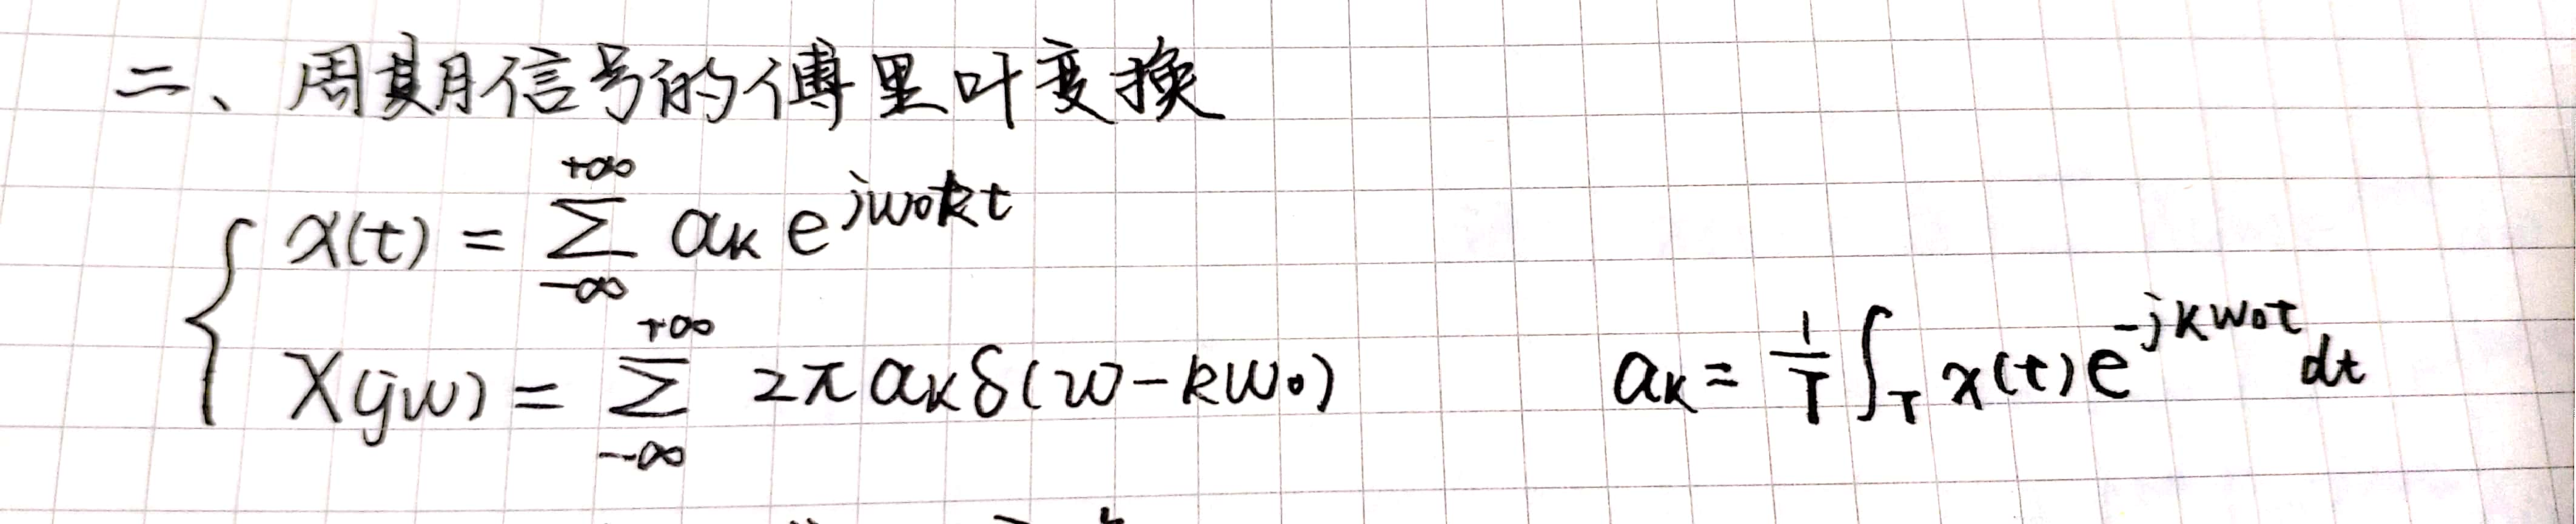 二、周期信号的傅里叶变换
x(t) = \sum_{-∞}^{+∞} a_k e^{jω_0kt}
X(jω) = \sum_{-∞}^{+∞} 2π a_k δ(ω-kω_0)    a_k = \frac{1}{T} ∫_T x(t) e^{-jkω_0t} dt